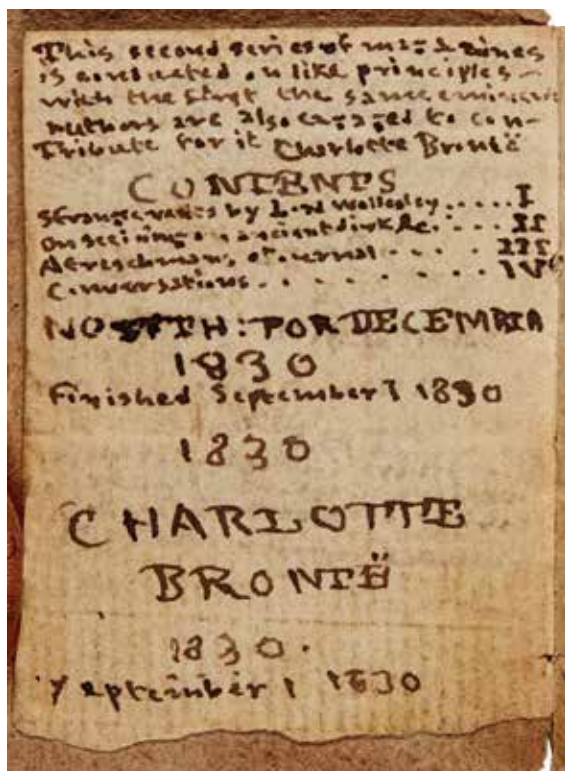 This second series of magazines
is conducted on like principles
with the first the same eminent
authors are also engaged to con-
tribute for it Charlotte Brontë
CONTENTS
by Lord Wellesley ..... I
On seeing an ancient dirk &c. ... II
A Frenchmans Journal .... III
Conversations ......... IV
FOR DECEMBER
1830
Finished September 1 1830
1830
CHARLOTTE
BRONTË
1830.
eptember 1 1830